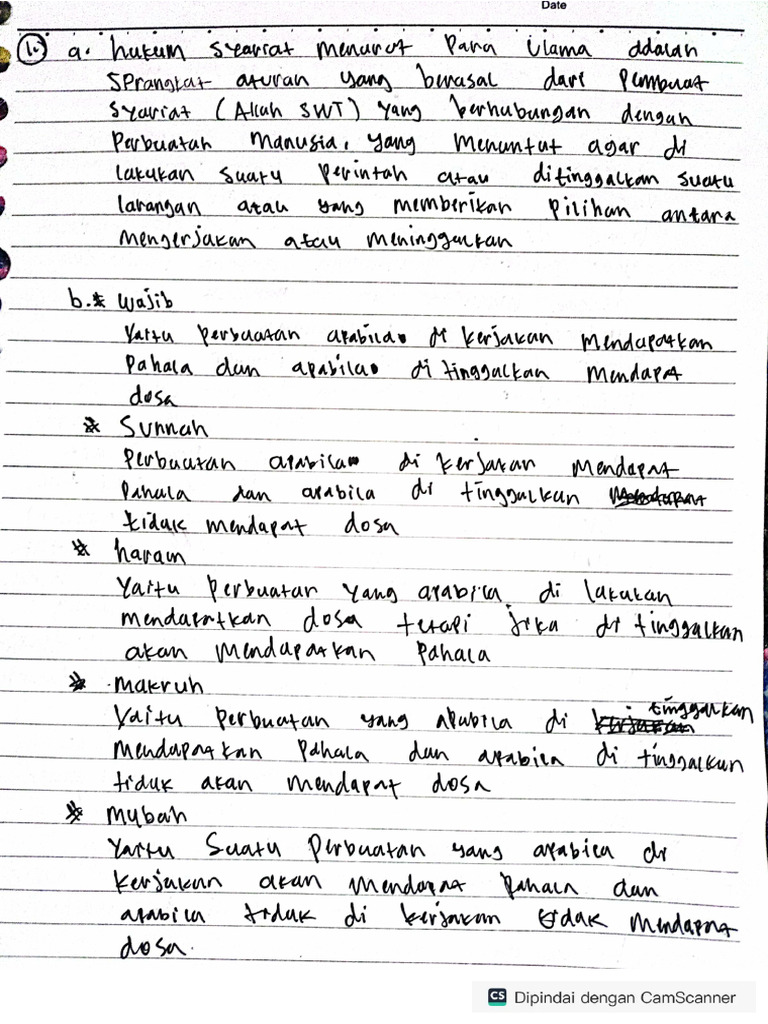 Date
1. a. hukum syariat menurut Para Ulama adalah
SPrangkat aturan yang berasal dari Pembuat
Syariat (Allah SWT) yang berhubungan dengan
Perbuatan Manusia, yang Menuntut agar di
lakukan suatu Perintah atau ditinggalkan suatu
larangan atau yang memberikan Pilihan antara
mengerjakan atau meninggalkan
b. * Wajib
Yaitu perbuatan apabila di kerjakan mendapatkan
Pahala dan apabila di tinggalkan mendapat
dosa
* Sunnah
Perbuatan apabila di kerjakan mendapat
Pahala dan apabila di tinggalkan
tidak mendapat dosa
* haram
Yaitu Perbuatan yang apabila di lakukan
mendapatkan dosa tetapi jika di tinggalkan
akan mendapatkan Pahala
* makruh
Yaitu Perbuatan yang apabila di tinggalkan
mendapatkan Pahala dan apabila di tinggalkan
tidak akan mendapat dosa
* Mubah
Yaitu Suatu Perbuatan yang apabila di
kerjakan akan mendapat Pahala dan
apabila tidak di kerjakan tidak mendapat
dosa.
CS Dipindai dengan CamScanner